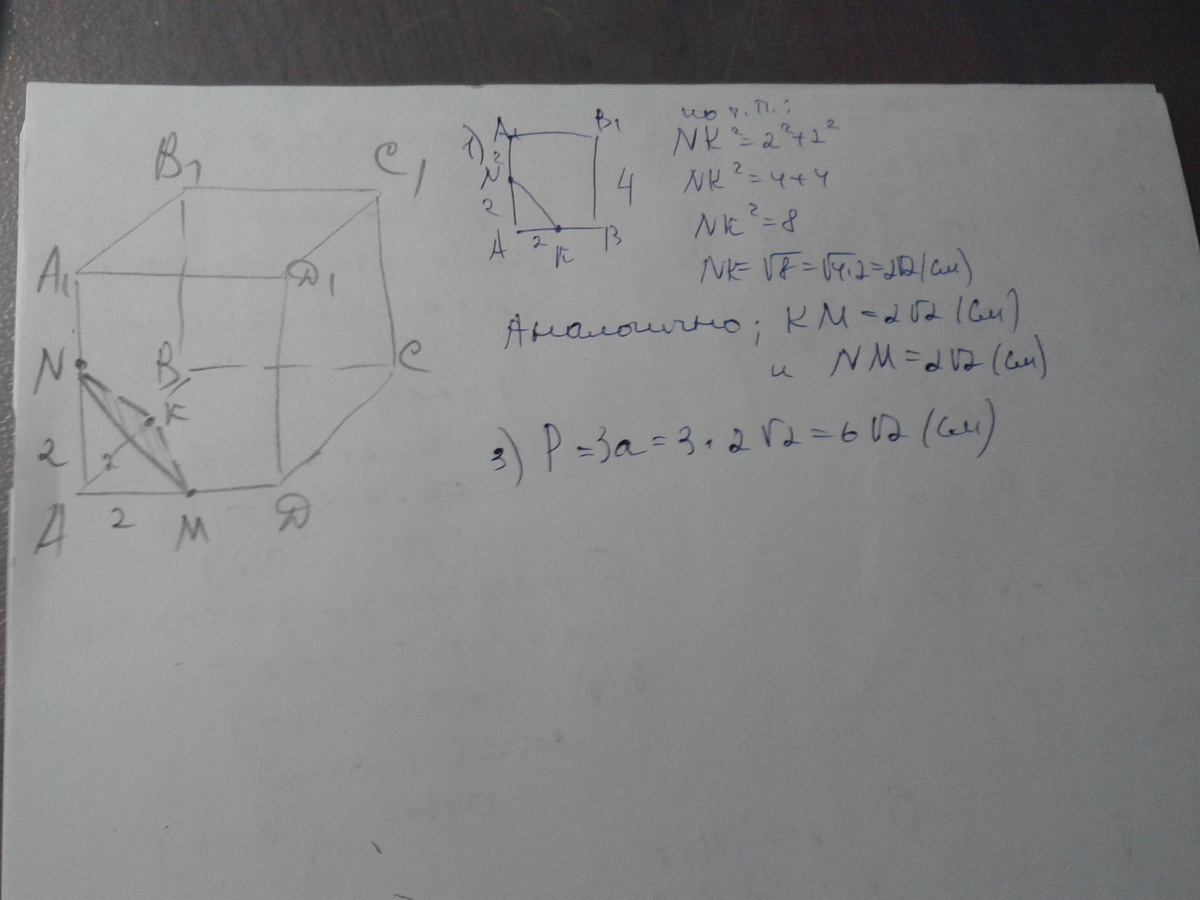 B₁
C₁
A₁
D₁
N
B
C
K
2
2
A
2
M
D
1)
A₁
B₁
2
N
2
4
A
2
K
B
по т.п.:
NK² = 2² + 2²
NK² = 4 + 4
NK² = 8
NK = √8 = √4·2 = 2√2 (см)
Аналогично; KM = 2√2 (см)
и NM = 2√2 (см)
3) P = 3a = 3 · 2√2 = 6√2 (см)